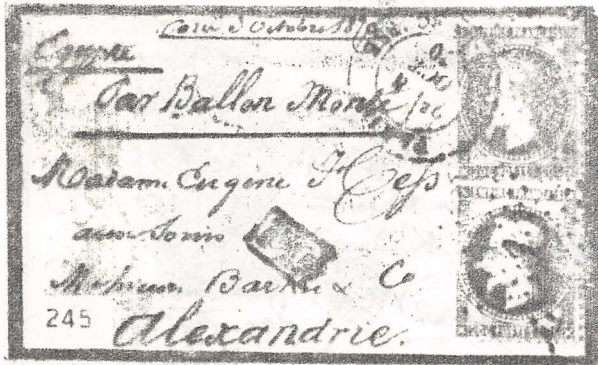 Octobre
Egypte
Par Ballon Monté
Madame Eugène Hess
aux soins
Messieurs & Co
245
Alexandrie.